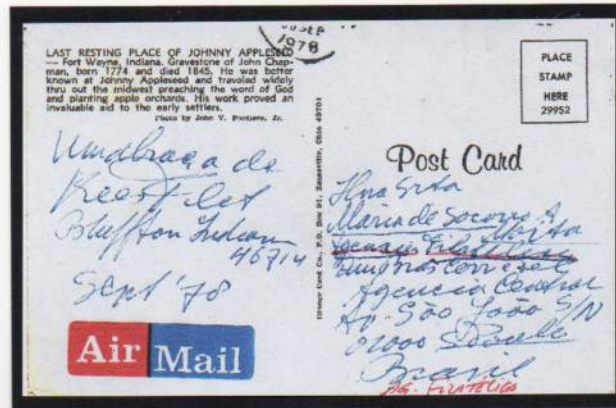 LAST RESTING PLACE OF JOHNNY APPLESEED
— Fort Wayne, Indiana. Gravestone of John Chap-
man, born 1774 and died 1845. He was better
known at Johnny Appleseed and traveled widely
thru out the midwest preaching the word of God
and planting apple orchards. His work proved an
invaluable aid to the early settlers.
Photo by John V. Pontiere, Jr.
1978
PLACE
STAMP
HERE
29952
Post Card
Zanesville, Ohio 43701
Umabraça de
Bluffton Indian
46714
Sept '78
Air Mail
Ilma Srta
Maria de Socorro A
Agencia Central
Av. São João S/N
01000 São Paulo
Brasil
AG. FILATÉLICA